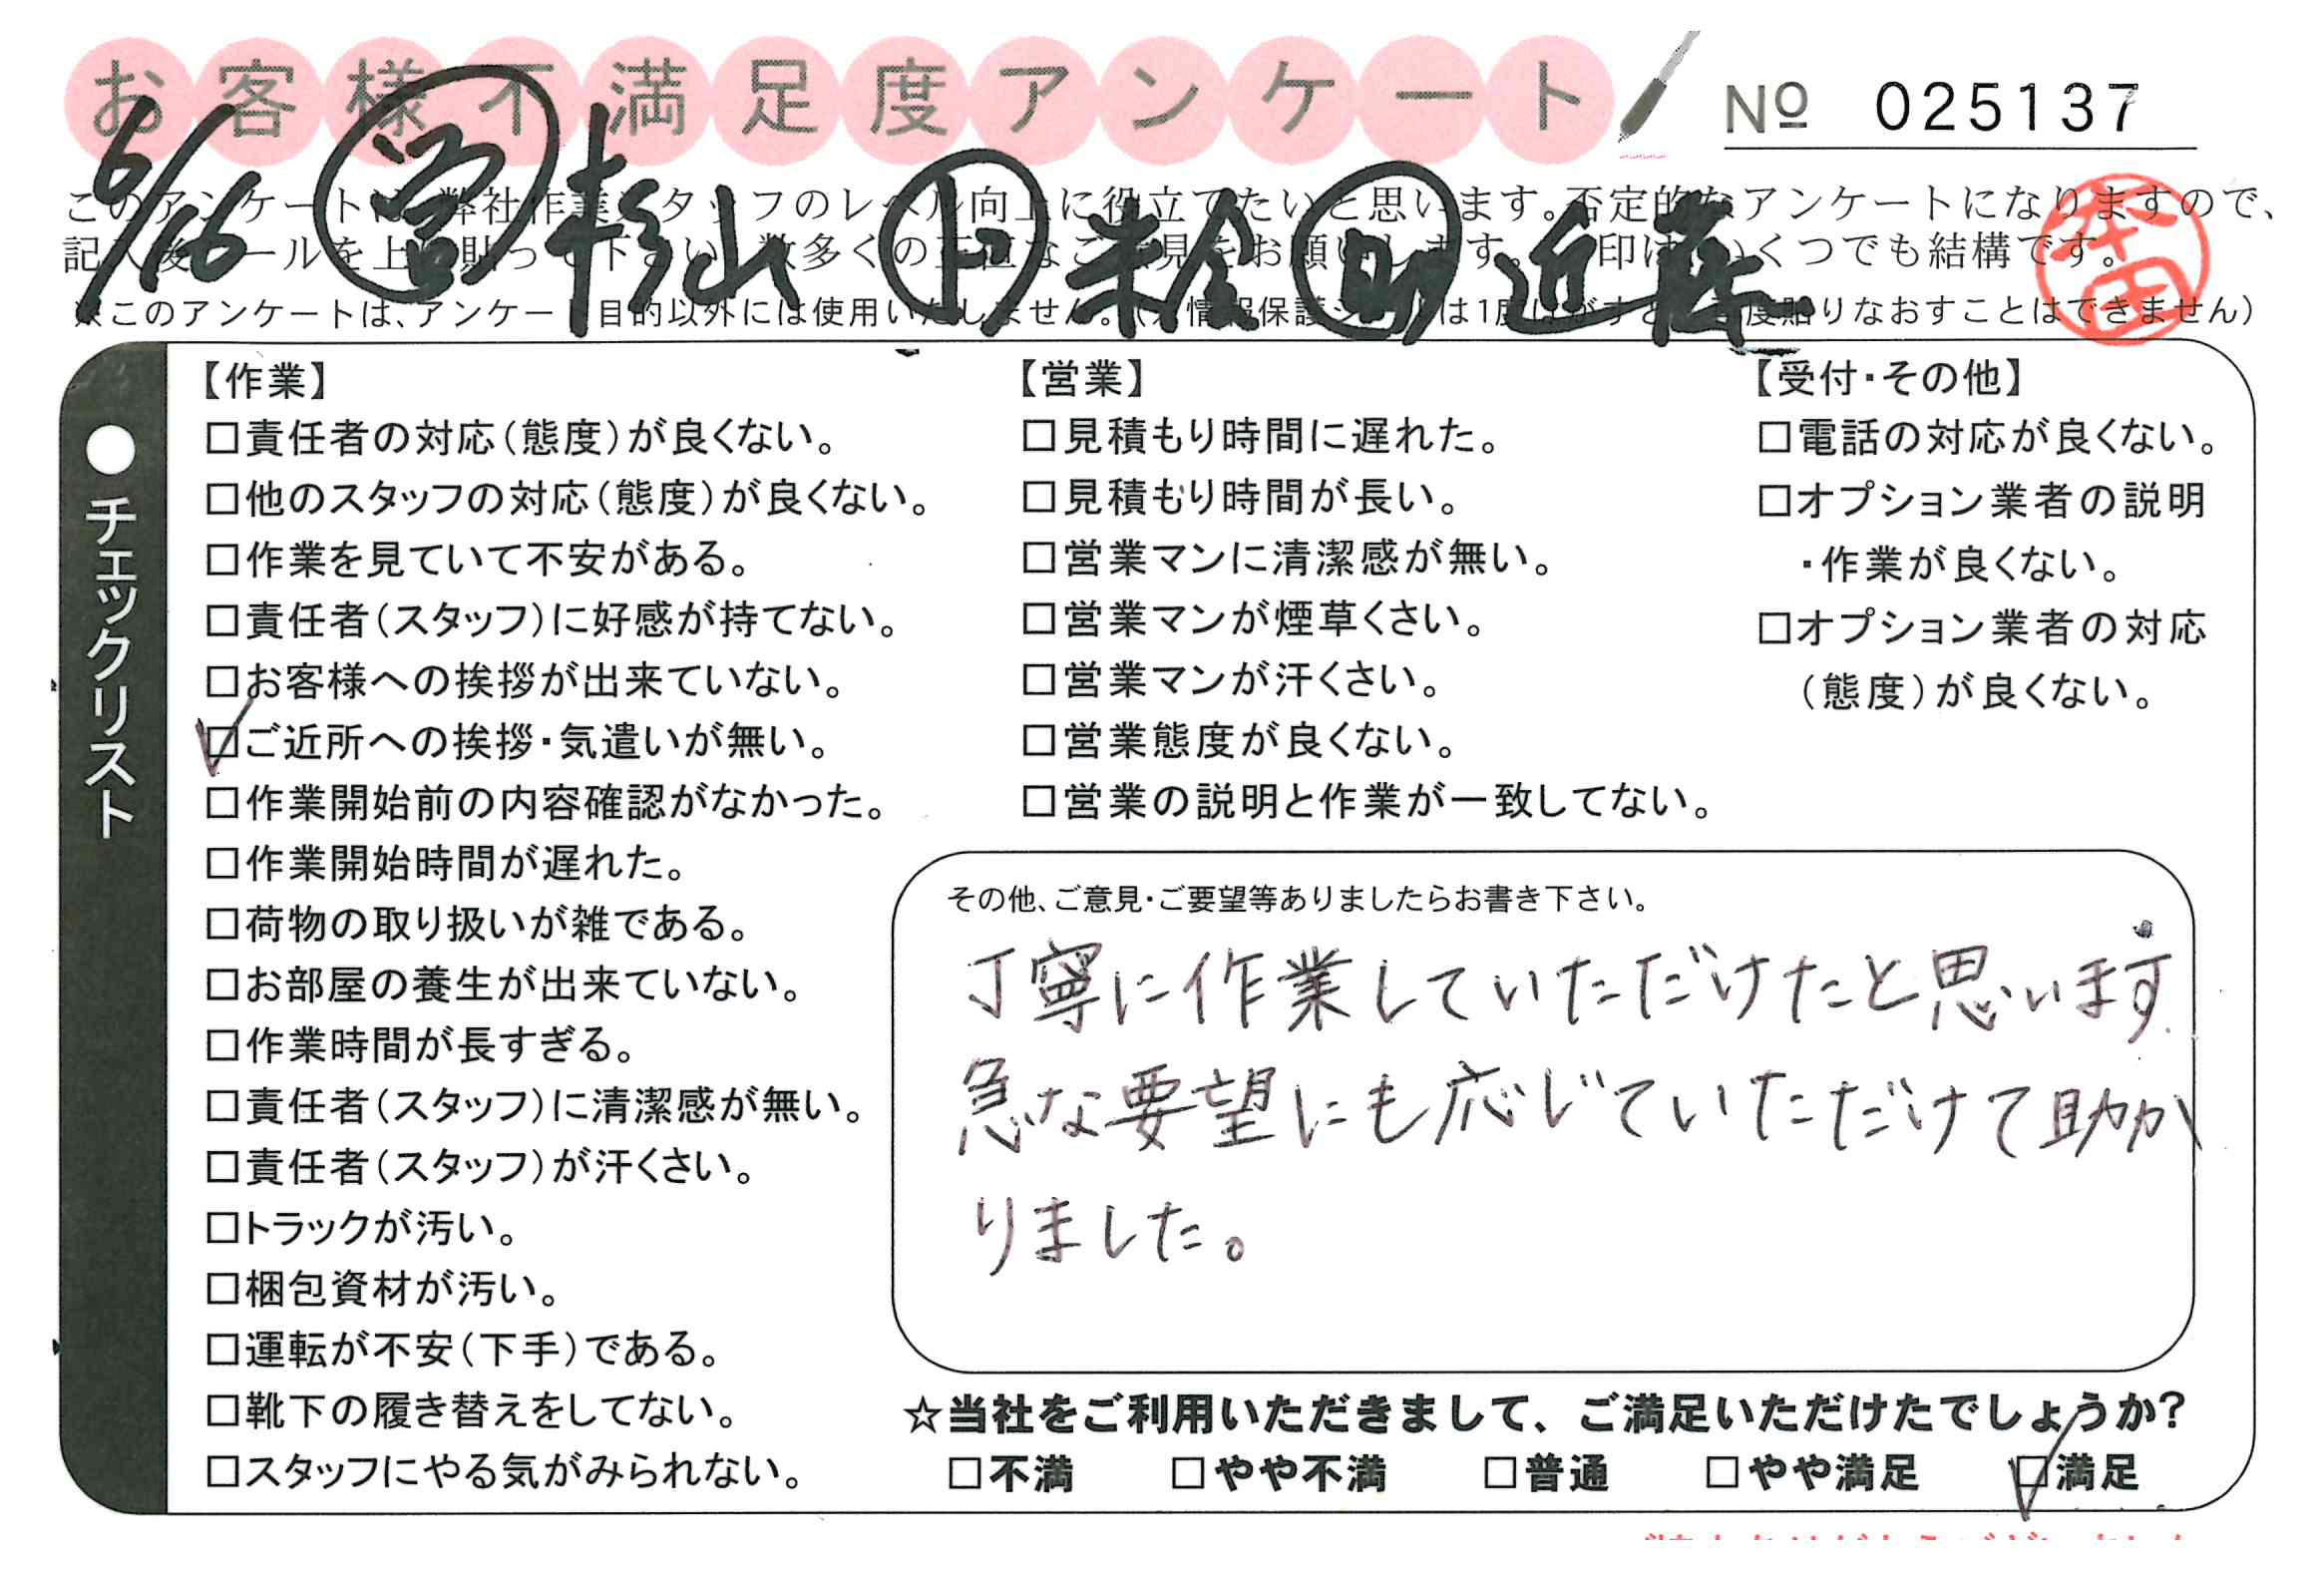 お客様不満足度アンケート
№ 025137
6/16 営 杉山 上 朱 助 近藤
本田
このアンケートは、弊社作業スタッフのレベル向上に役立てたいと思います。否定的なアンケートになりますので、
記入後シールを上に貼って下さい。数多くの正直なご意見をお願いします。 印はいくつでも結構です。
※このアンケートは、アンケート目的以外には使用いたしません。 情報保護シールは1度はがすと、再度貼りなおすことはできません)
●チェックリスト
【作業】
□責任者の対応(態度)が良くない。
□他のスタッフの対応(態度)が良くない。
□作業を見ていて不安がある。
□責任者(スタッフ)に好感が持てない。
□お客様への挨拶が出来ていない。
☑ご近所への挨拶・気遣いが無い。
□作業開始前の内容確認がなかった。
□作業開始時間が遅れた。
□荷物の取り扱いが雑である。
□お部屋の養生が出来ていない。
□作業時間が長すぎる。
□責任者(スタッフ)に清潔感が無い。
□責任者(スタッフ)が汗くさい。
□トラックが汚い。
□梱包資材が汚い。
□運転が不安(下手)である。
□靴下の履き替えをしてない。
□スタッフにやる気がみられない。
【営業】
□見積もり時間に遅れた。
□見積もり時間が長い。
□営業マンに清潔感が無い。
□営業マンが煙草くさい。
□営業マンが汗くさい。
□営業態度が良くない。
□営業の説明と作業が一致してない。
【受付・その他】
□電話の対応が良くない。
□オプション業者の説明
・作業が良くない。
□オプション業者の対応
(態度)が良くない。
その他、ご意見・ご要望等ありましたらお書き下さい。
丁寧に作業していただけたと思います
急な要望にも応じていただけて助か
りました。
☆当社をご利用いただきまして、ご満足いただけたでしょうか?
□不満 □やや不満 □普通 □やや満足 ☑満足